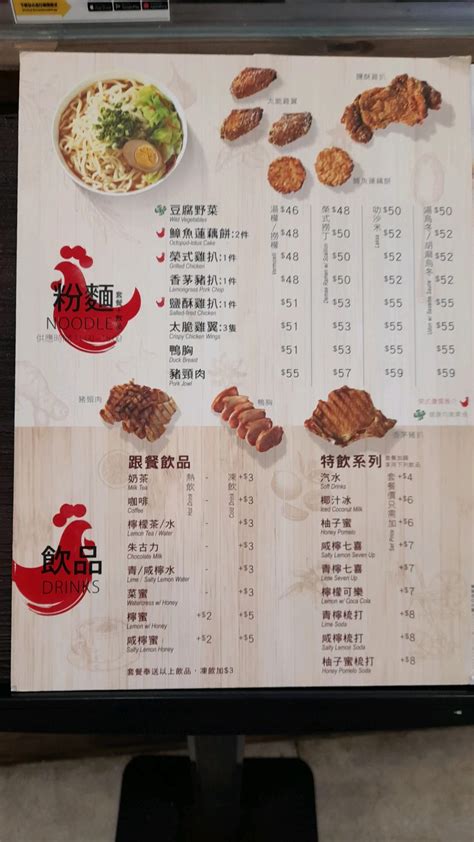 鹽酥雞扒
太脆雞翼
鱆魚蓮藕餅
粉麵
套餐
NOODLE
豆腐野菜
Wild Vegetables
$46 $48 $50 $50
鱆魚蓮藕餅:2件
Octopod-lotus Cake
$48 $50 $52 $52
榮式雞扒:1件
Grilled Chicken
$48 $50 $52 $52
香茅豬扒:1件
Lemongrass Pork Chop
$48 $50 $52 $52
鹽酥雞扒:1件
Salted-fried Chicken
$51 $53 $55 $55
太脆雞翼:3隻
Crispy Chicken Wings
$51 $53 $55 $55
鴨胸
Duck Breast
$51 $53 $55 $55
豬頸肉
Pork Jowl
$55 $57 $59 $59
豬頸肉
鴨胸
香茅豬扒
飲品
DRINKS
跟餐飲品
熱飲
Hot Drink
凍飲
Cold Drink
奶茶 - +$3
Milk Tea
咖啡 - +$3
Coffee
檸檬茶/水 - +$3
Lemon Tea / Water
朱古力 - +$3
Chocolate Milk
青/咸檸水 - +$3
Lime / Salty Lemon Water
菜蜜 - +$3
Watercress w/ Honey
檸蜜 +$2 +$5
Lemon w/ Honey
咸檸蜜 +$2 +$5
Salty Lemon Honey
套餐奉送以上飲品，凍飲加$3
特飲系列
套餐加錢
享用下列飲品
套餐價只需加
Set Price
汽水 +$4
Soft Drinks
椰汁冰 +$6
Iced Coconut Milk
柚子蜜 +$6
Honey Pomelo
咸檸七喜 +$7
Salty Lemon Seven Up
青檸七喜 +$7
Lime Seven Up
檸檬可樂 +$7
Lemon w/ Coca Cola
青檸梳打 +$8
Lime Soda
咸檸梳打 +$8
Salty Lemon Soda
柚子蜜梳打 +$8
Honey Pomelo Soda